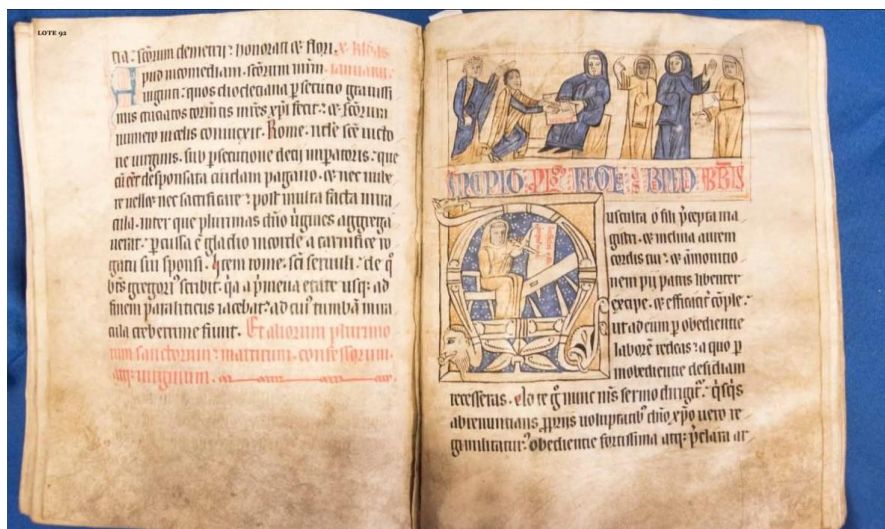 LOTE 92
cia. scõrum demetrii. honorati & flori. x. kl'das
Apud nicomediam. scõrum mrm̃. ianuarii.
uiginti. quos diocleciana psecutio grauissi
mis cruciatos tormtis mr̃es xp̃i fecit. & sc̃orum
numero in celis coniuxit. Rome. nĩle sc̃e uicto
rie uirginis. sub psecutione decii imperatoris. que
cũ eẽt desponsata cuidam pagano. & nec nube
re uellet nec sacrificare. post multa facta mira
cula. inter que plurimas dño ũgines aggregã
uerat. pcussa ẽ gladio in corde a carnifice ro
gatu sui sponsi. Item rome. sc̃i seruuli. de q̊
bt̃s gregori' scribit. qa a p̃meua etate usq; ad
finem paraliticus iacebat. ad cui' tumbã mira
cula creberrime fiunt. Et aliorum plurimo
rum sanctorum. martirum. confessorum.
atq; uirginum.
INCIPIT PLOG' REGLE BENED' ABBIS
Ausculta o fili p̃cepta ma
gistri. & inclina aurem
cordis tui. & ãmonitio
nem pii patris libenter
excipe. & efficacit̃ cõple.
ut ad eum p obedientie
laborẽ redeas. a quo p
inobedientie desidiam
recesseras. Ad te g̊ nunc m̃s sermo dirigit'. q̃sq̃s
abrenuntians ppriis uoluptatib' dño xp̃o uero re
gi militatur'. obedientie fortissima atq; p̃clara ar